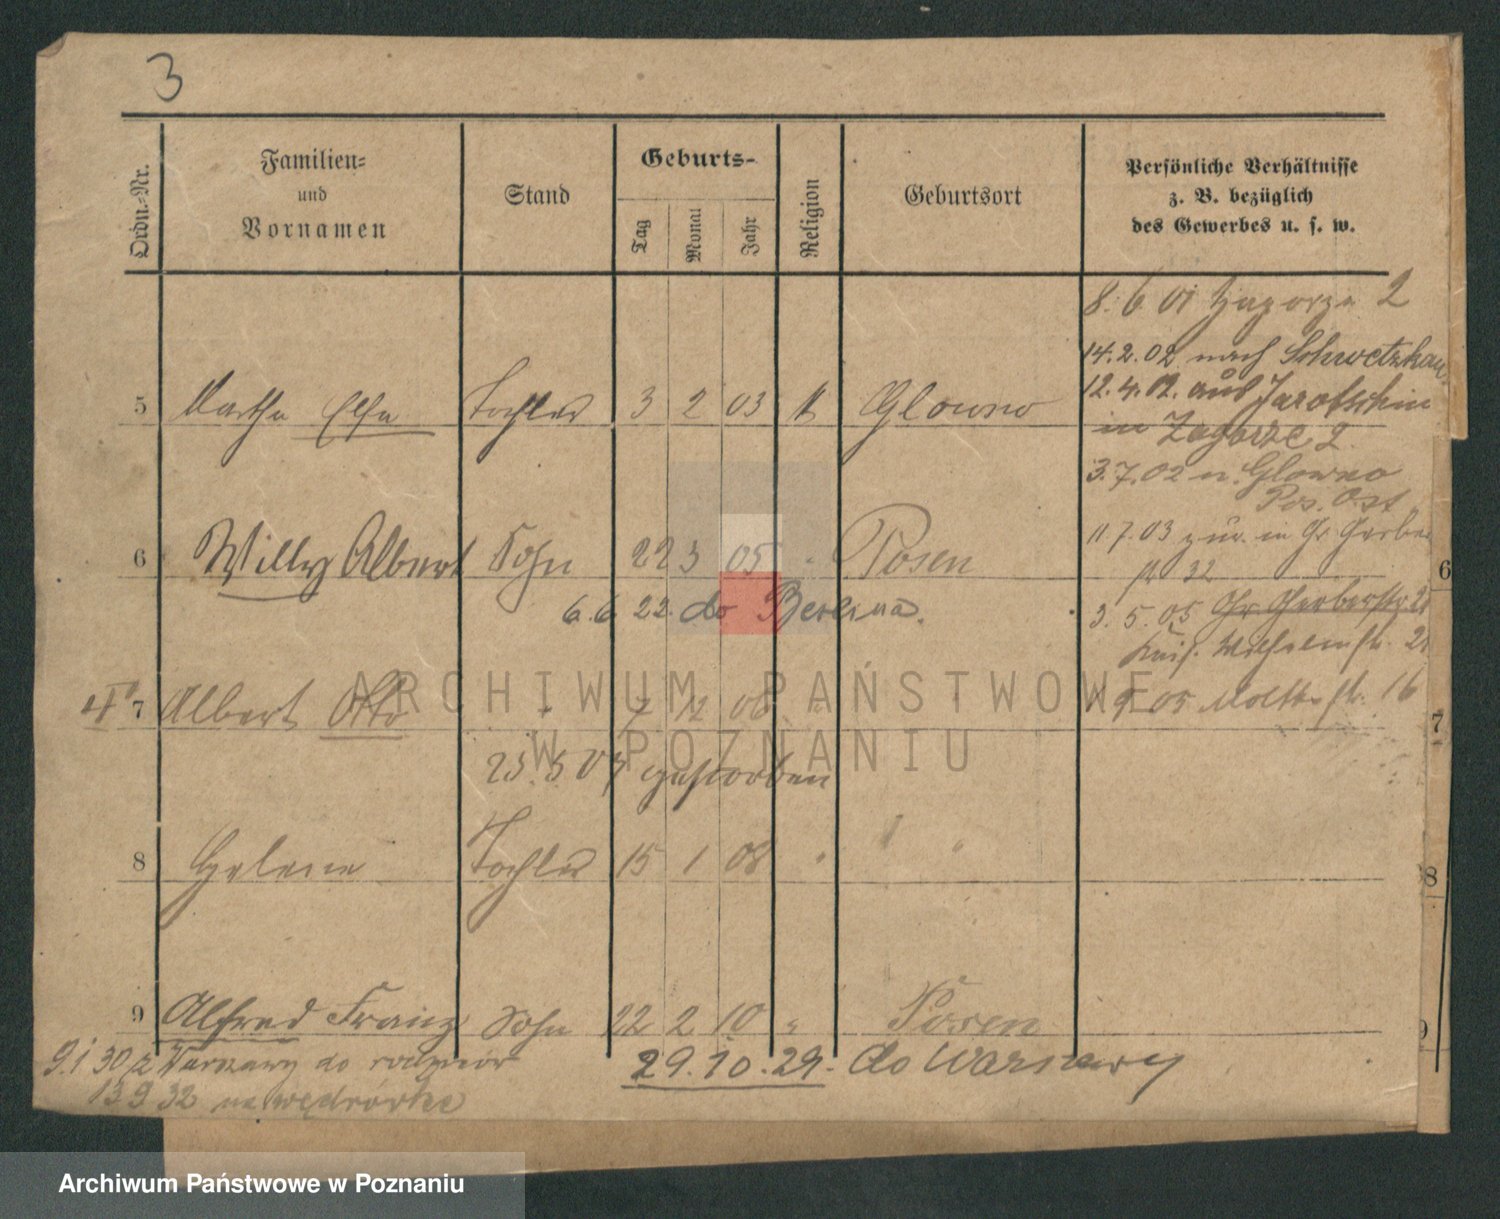 3
Ordn.-Nr.
Familien-
und
Vornamen
Stand
Geburts-
Tag
Monat
Jahr
Religion
Geburtsort
Persönliche Verhältnisse
z. B. bezüglich
des Gewerbes u. s. w.
8. 6. 01 Zagorze 2
14. 2. 02 nach Schwetzkau
12. 4. 02. aus Jarotschin
in Zagorze 2.
3. 7. 02 n. Glowno
Pos. Ost
11. 7. 03 zur. in Gr Gerber
32
3. 5. 05 Gr. Gerberstr 21
Kais. Wilhelmstr. 21
9 05 Moltkestr. 16
5 Martha Elsa Tochter 3 2 03 k Glowno
6 Willy Albert Sohn 22 3 05 " Posen 6
6. 6 22 do Berlina.
7 Albert Otto " 7 12 06 " 7
25. 5 07 gestorben
8 Helene Tochter 15 1 08 " " 8
9 Alfred Franz Sohn 22 2 10 " Posen 9
9. 1 30 z Warszawy do rodziców
29. 10. 29. do Warszawy
13 9 32 na wędrówkę
ARCHIWUM PAŃSTWOWE
W POZNANIU
Archiwum Państwowe w Poznaniu